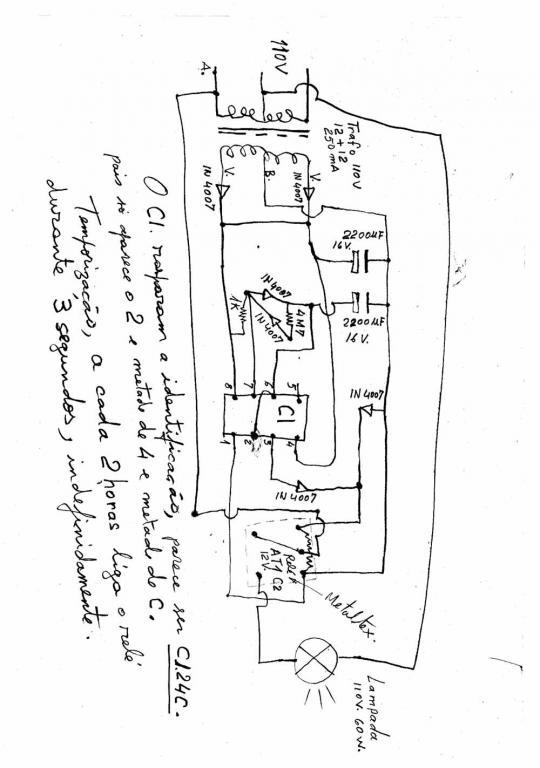 110V
A.
Trafo 110V
12 + 12
250 mA
V.
B.
V.
1N 4007
1N 4007
2200µF
16V.
2200µF
16V.
1K
1N4007
1N 4007
4M7
8
7
6
5
CI
1
2
3
4
1N 4007
1N 4007
Relé
AT1 C2
12V.
Metaltex.
Lampada
110V. 60W.
O CI. rasparam a identificação, parece ser CI24C.
pois só aparece o 2 e metade de 4 e metade de C.
Temporização, a cada 2 horas liga o relé
durante 3 segundos, indefinidamente.